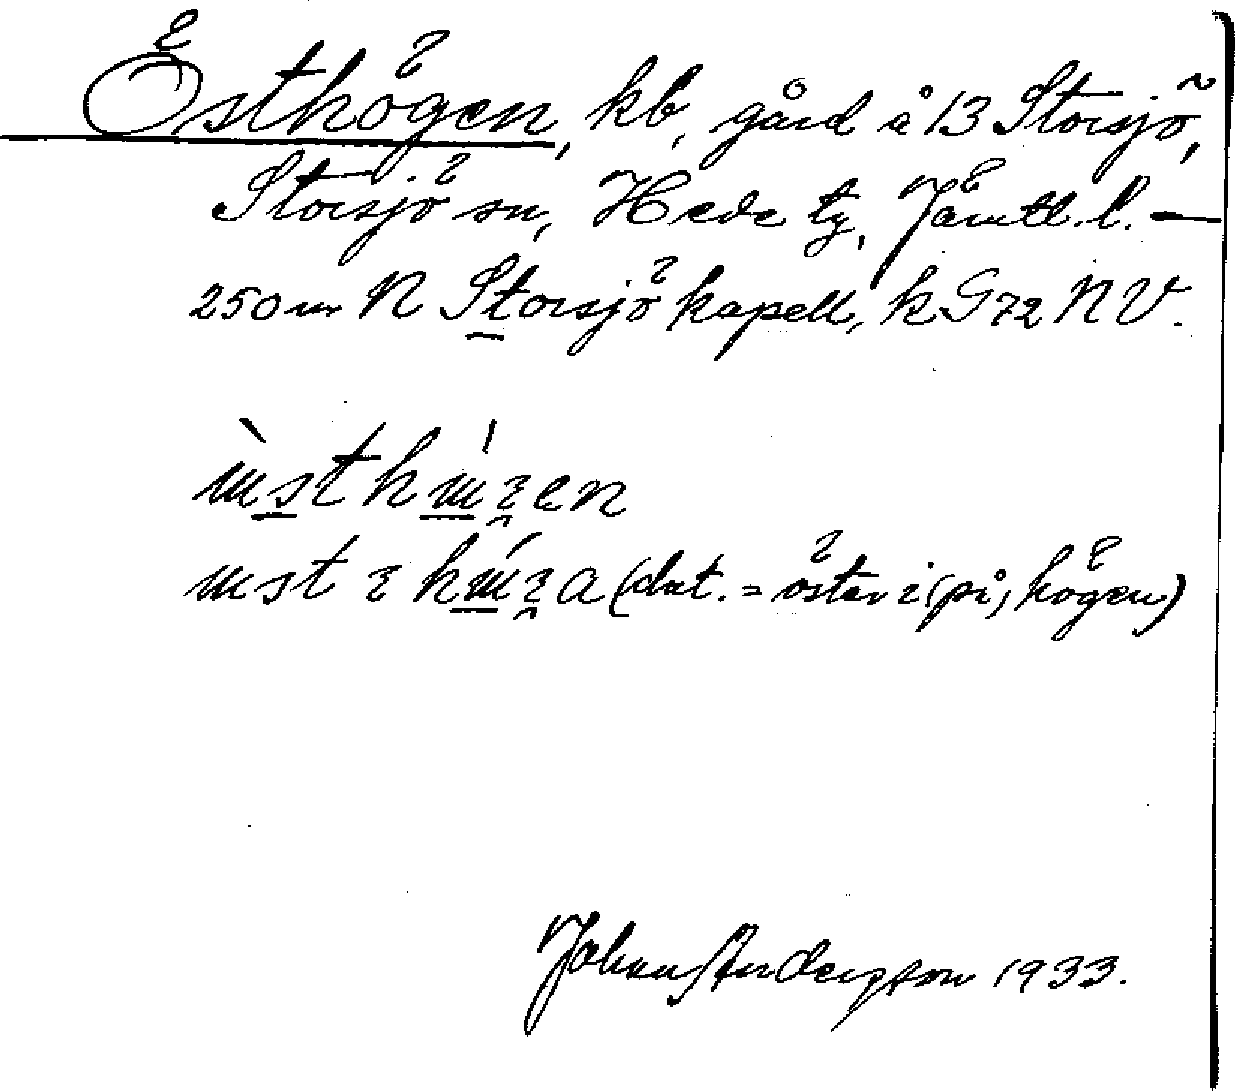 Östhögen, kb, gård å 13 Storsjö,
Storsjö sn, Hede tg, Jämtl. l. —
250 m N Storsjö kapell, k G 72 NV.
(dat. = öster i (på) högen)
Johan Anderson 1933.